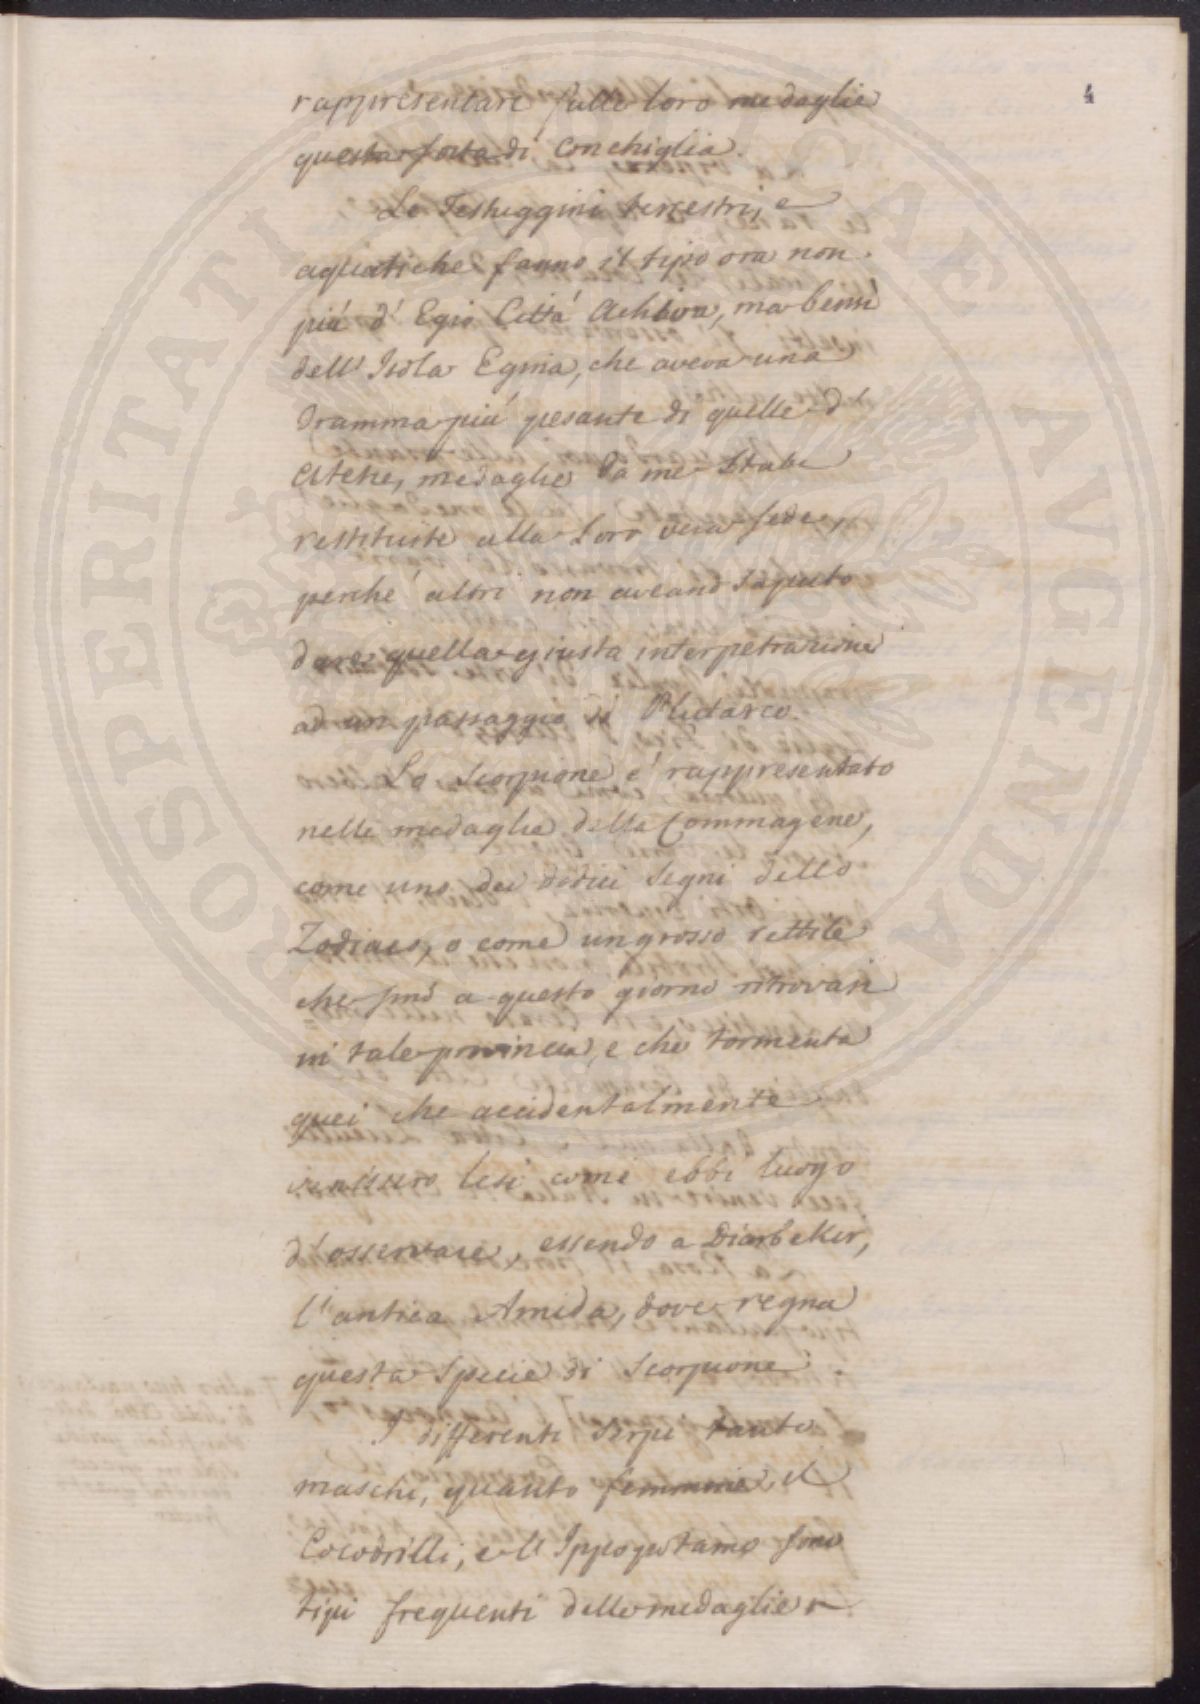 4
rappresentare sulle loro medaglie
questa sorta di Conchiglia.
Le Testuggini terrestri, e
aquatiche fanno il tipo ora non
più d' Egio Città Achea, ma bensì
dell' Isola Egina, che aveva una
Dramma più pesante di quelle d'
Atene, medaglie da me state
restituite alla Loro vera sede,
perché altri non aveano saputo
dare quella giusta interpetrazione
ad un passaggio di Plutarco.
Lo Scorpione é rappresentato
nelle medaglie della Commagene,
come uno dei dodici Segni dello
Zodiaco, o come un grosso rettile
che sino a questo giorno ritrovasi
in tale provincia, e che tormenta
quei che accidentalmente
venissero lesi come ebbi luogo
d' osservare, essendo a Diarbekir,
l' antica Amida, dove regna
questa Specie di Scorpione.
I differenti Serpi tanto
maschi, quanto femmine, i
Cocodrilli, e l' Ippopotamo sono
tipi frequenti delle medaglie
SPERITATI PVBLICAE AVGENDAE